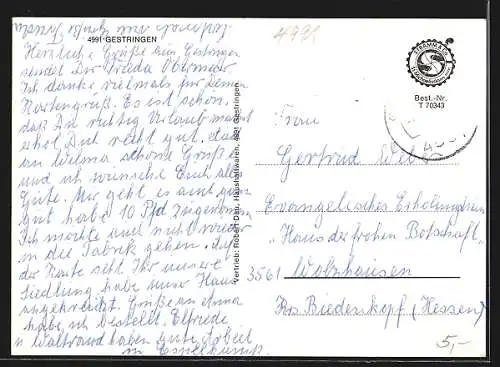 4991 GESTRINGEN
4991
Herzliche Grüße hier Gestringen
sendet Dir Frieda Obermeier
Ich danke vielmals für Deinen
Kartengruß. Es ist schön,
daß Du richtig Urlaub machst
erhol Dich recht gut, dann
an Wilma schöne Grüße
und ich wünsche Euch alles
Gute. Mir geht es auch ganz
gut habe 10 Pfd zugenommen
Ich möchte auch nicht wieder
in die Fabrik gehen. Auf
der Karte seht Ihr unsere
Siedlung habe unser Haus
angekreuzt. Grüße an Anna
habe ich bestellt. Elfriede
u Waltraud haben gute Arbeit
in Espelkamp.
Vertrieb: Robert Duj, Haushaltwaren, 4991 Gestringen
Best.-Nr.
T 70343
Frau
Gertrud
Evangelisches Erholungsheim
"Haus der frohen Botschaft"
3561 Wolzhausen
Krs Biedenkopf (Hessen)
5,-